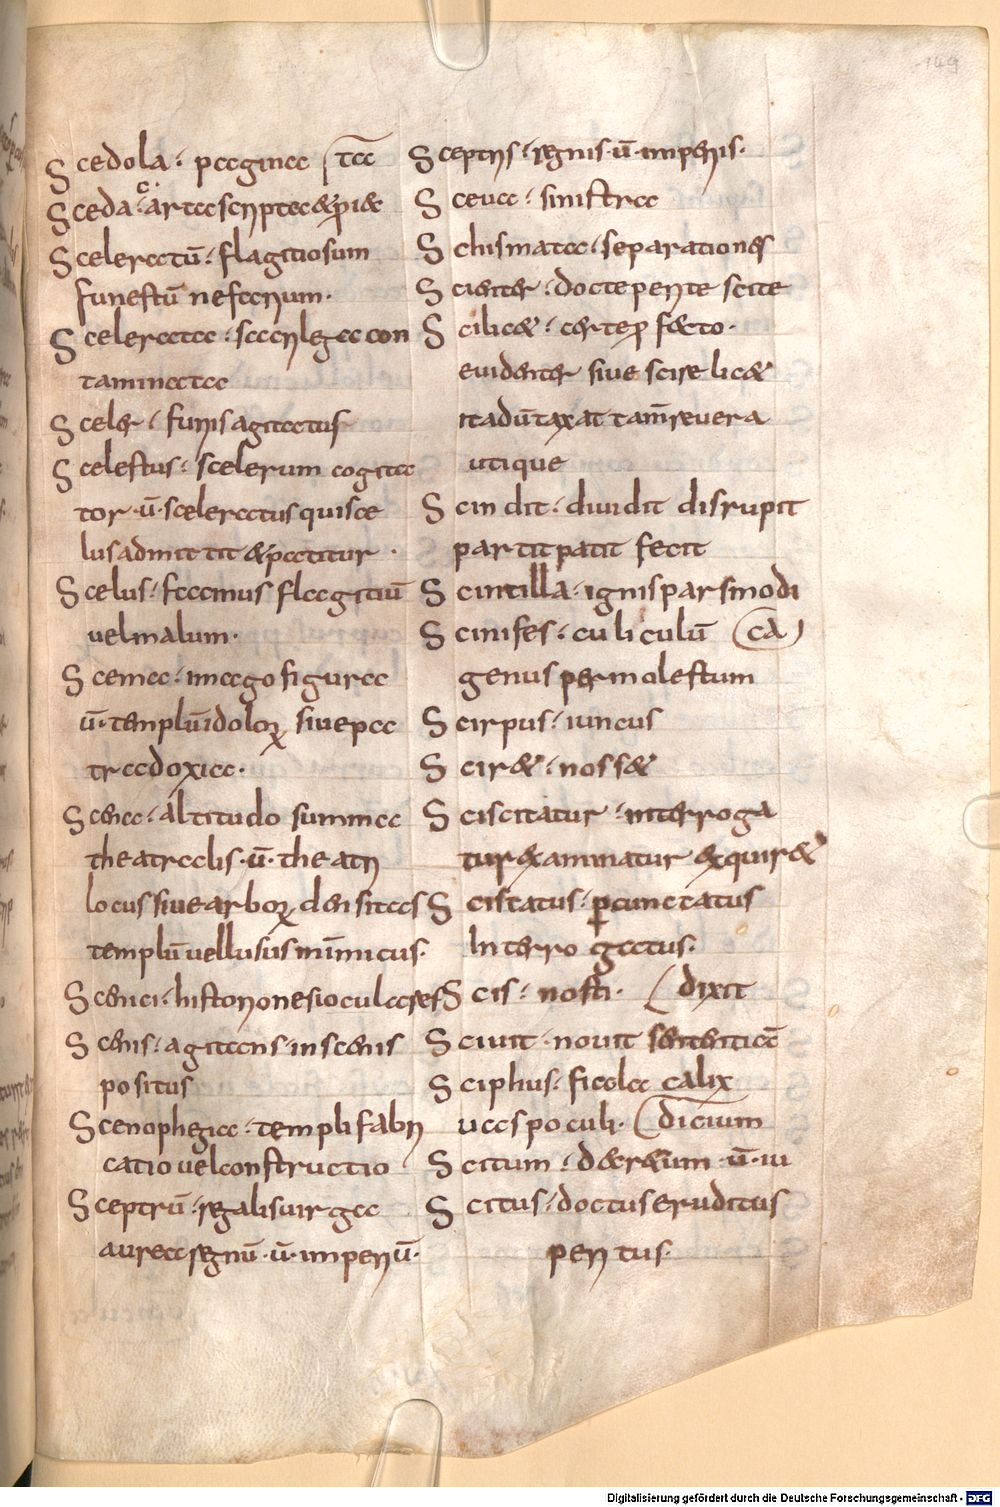 149
Scedola · pagina ta
Sceda · carta scripta & pi&
Sceleratū · flagitiosum
funestū nefarium ·
Scelerata · sacrilega con
taminata
Sceler · furiis agitatus
Scelestus · scelerum cogita
tor · ū · sceleratus qui sce
lus admittit & patitur ·
Scelus · facinus flagitiū
uel malum ·
Scema · imago figura
ū · templū idoloꝝ siue pa
tradoxia ·
Scena · altitudo summa
theatralis · ū · theatri
locus siue arboꝝ densitas
templū uel lusus mimicus ·
Scenici · historiones ioculares
Scenis · agitans in scenis
positus
Scenophegia · templi fabri
catio uel constructio
Sceptrū · regalis uirga
aurea regnū · ū · imperiū ·
Sceptris · regnis · ū · imperiis ·
Sceua · sinistra
Schismata · separationes
Scienter · docte perite scite
Scilic& · certe p̄ fecto ·
euidenter siue scire lic&
ita dūtaxat tam̄ reuera
utique
Scindit · diuidit disrupit
partit patit fecit
Scintilla · ignis pars modi
Scinifes · culiculū ca
genus permolestum
Scirpus · iuncus
Scir& · noss&
Sciscitatur · interroga
tur examinatur exquir&
Scistatus · ꝑcunctatus
Interrogatus ·
Scis · nosti · dixit
Sciuit · novit sententiā
Sciphus · fiola calix
uas poculi · dicium
Scitum · decretum · ū · iu
Scitus · doctus eruditus
peritus ·
Digitalisierung gefördert durch die Deutsche Forschungsgemeinschaft - DFG